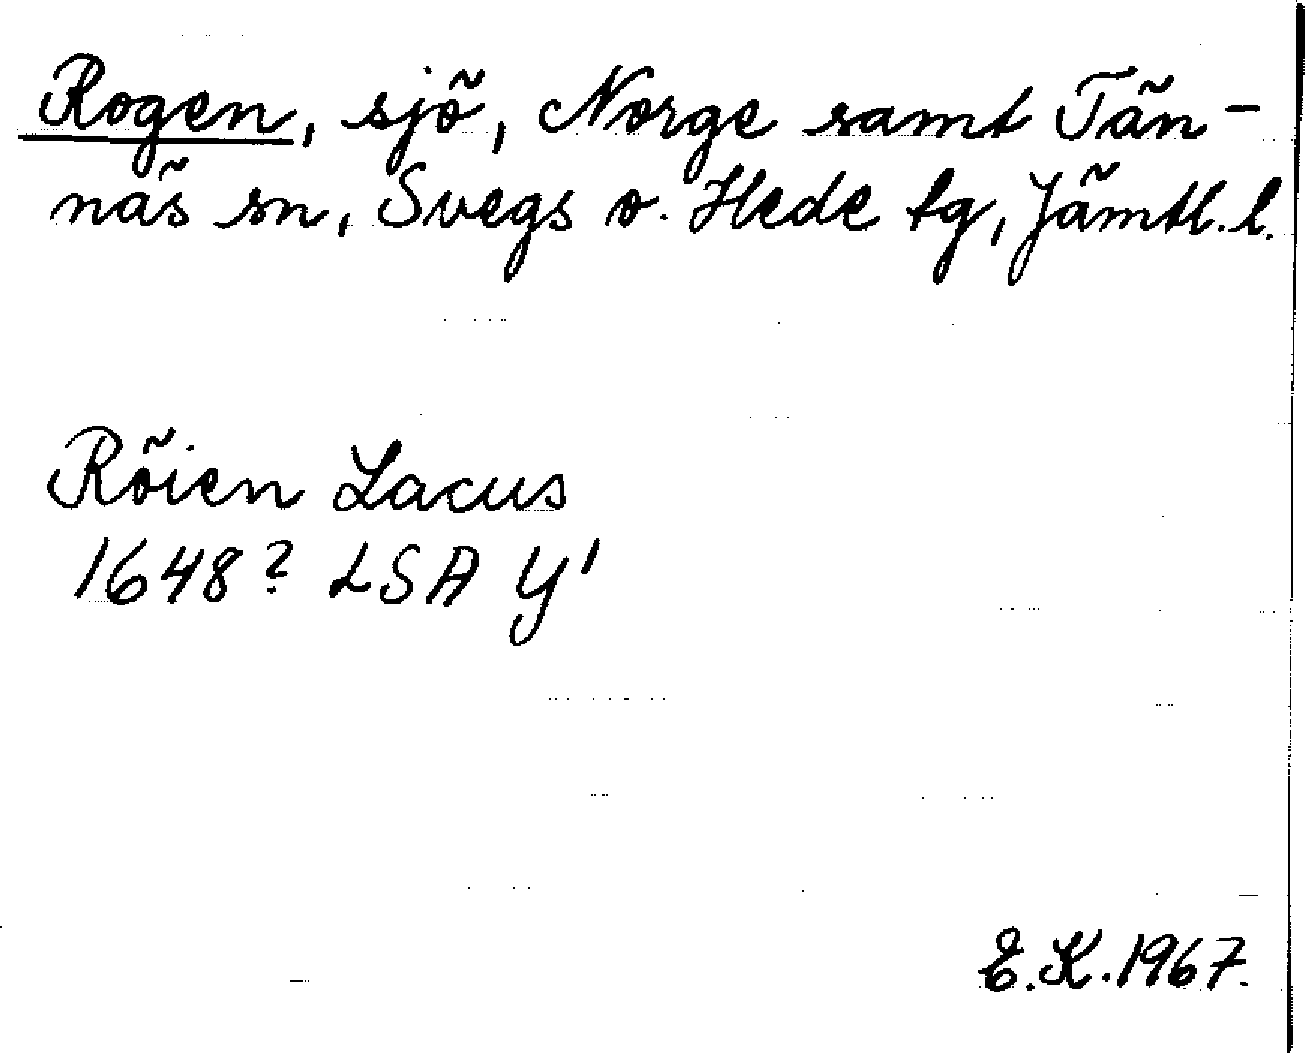 Rogen, sjö, Norge samt Tän-
näs sn, Svegs o. Hede tg, Jämtl. l.
Röien Lacus
1648? LSA Y1
E.K. 1967.